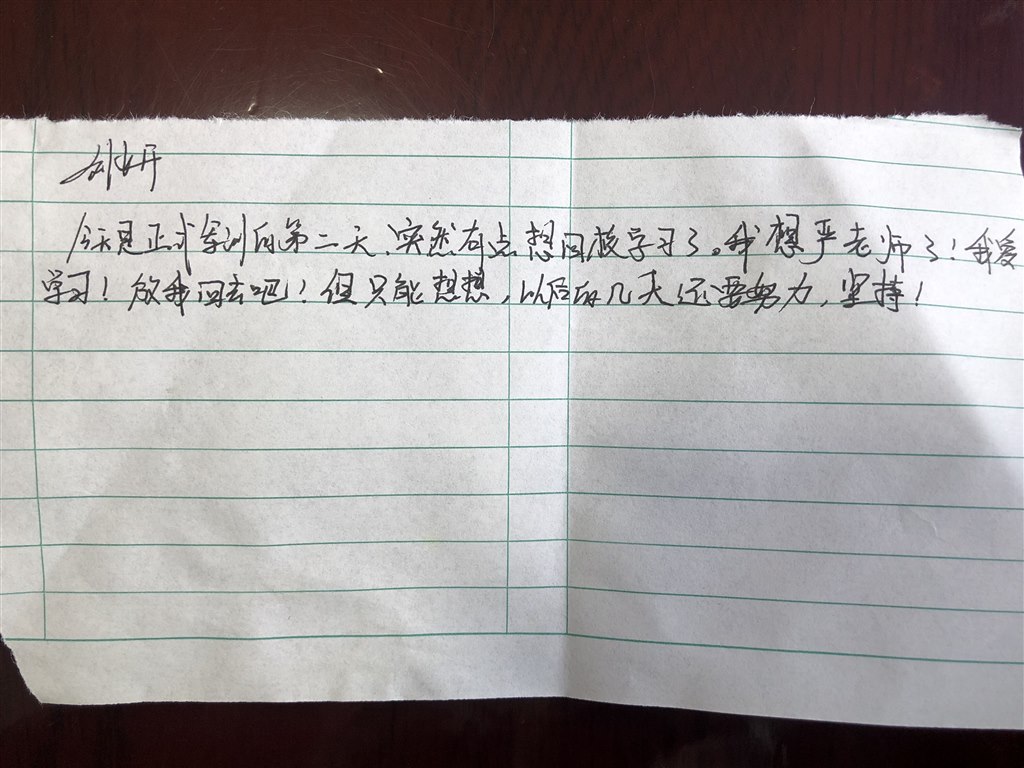 刘妍
今天是正式军训的第二天,突然有点想回校学习了。我想严老师了!我爱
学习!放我回去吧!但只能想想,以后的几天还要努力,坚持!